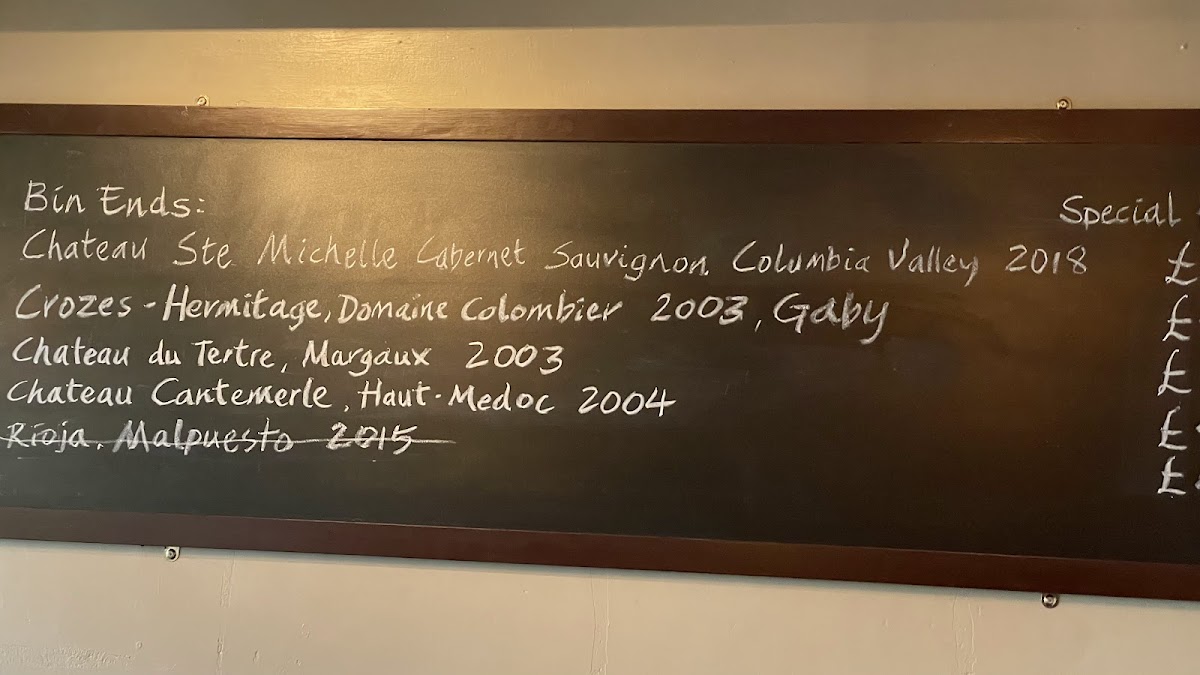 Bin Ends: Special
Chateau Ste Michelle Cabernet Sauvignon Columbia Valley 2018 £
Crozes-Hermitage, Domaine Colombier 2003, Gaby £
Chateau du Tertre, Margaux 2003 £
Chateau Cantemerle, Haut-Medoc 2004 £
Rioja, Malpuesto 2015 £